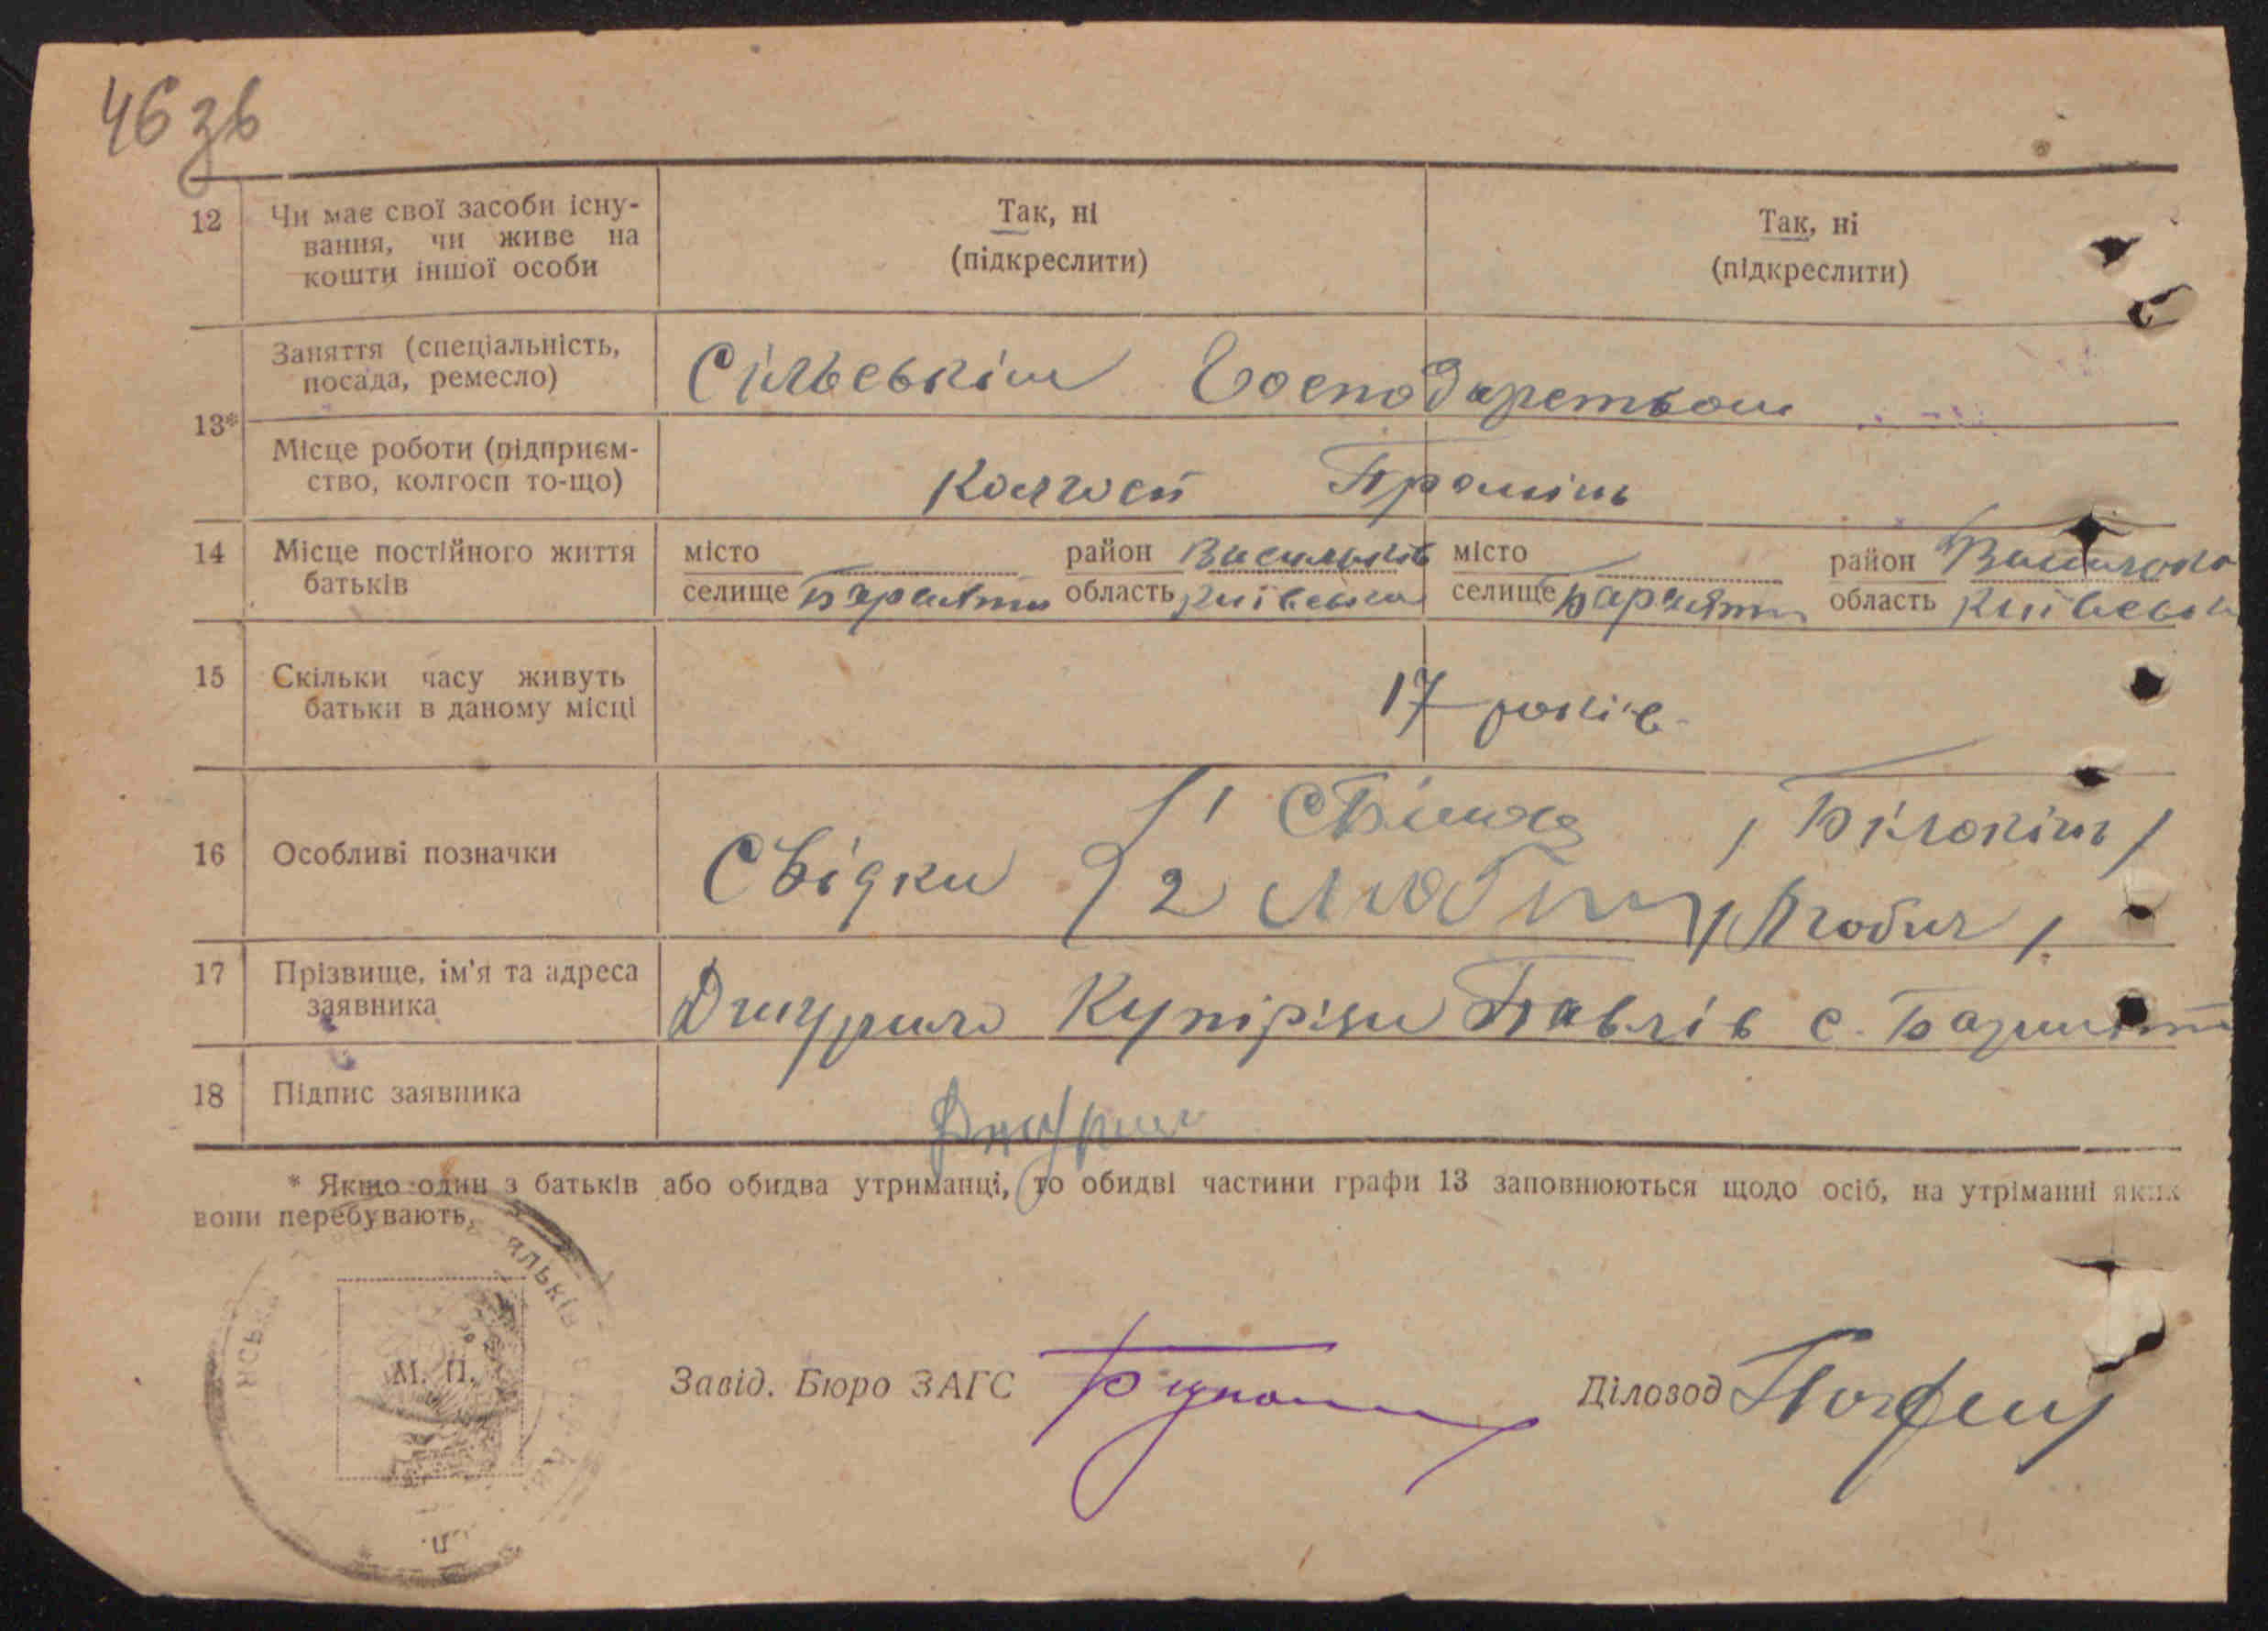 46 зв
12 Чи має свої засоби існу-
вання, чи живе на
кошти іншої особи
Так, ні
(підкреслити)
Так, ні
(підкреслити)
13*
Заняття (спеціальність,
посада, ремесло)
Сільським Господарством
Місце роботи (підприєм-
ство, колгосп то-що)
Колгосп Промінь
14 Місце постійного життя
батьків
місто
селище Бархатки
район Васильків
область Київська
місто
селище
район
область Київська
15 Скільки часу живуть
батьки в даному місці
17 років
16 Особливі позначки
Свідки
1 / Білокінь /
2
17 Прізвище, ім'я та адреса
заявника
Купірізи Павлів с.
18 Підпис заявника
* Якщо один з батьків або обидва утриманці, то обидві частини графи 13 заповнюються щодо осіб, на утріманні яких
вони перебувають.
М. П.
Завід. Бюро ЗАГС
Діловод